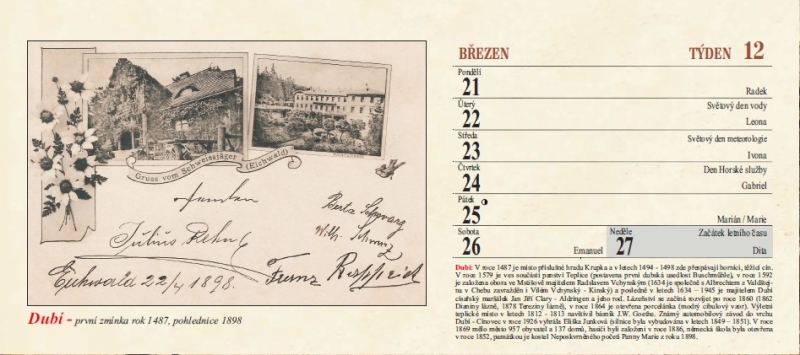 Gruss vom Schweissjäger (Eichwald)
Julius
Eichwald 22/4 1898.
Dubí - první zmínka rok 1487, pohlednice 1898
BŘEZEN TÝDEN 12
Pondělí
21 Radek
Úterý Světový den vody
22 Leona
Středa Světový den meteorologie
23 Ivona
Čtvrtek Den Horské služby
24 Gabriel
Pátek
25 Marián / Marie
Sobota Neděle Začátek letního času
26 Emanuel 27 Dita
Dubí: V roce 1487 je místo příslušné hradu Krupka a v letech 1494 - 1498 zde přepírávají horníci, těžící cín.
V roce 1579 je ves součástí panství Teplice (postavena první dubská usedlost Buschmühle), v roce 1592
je založena obora ve Mstišově majitelem Radslavem Vchynským (1634 je společně s Albrechtem z Valdštej-
na v Chebu zavražděn i Vilém Vchynský - Kinský) a posledně v letech 1634 – 1945 je majitelem Dubí
císařský maršálek Jan Jiří Clary - Aldringen a jeho rod. Lázeňství se začíná rozvíjet po roce 1860 (1862
Dianiny lázně, 1878 Tereziny lázně), v roce 1864 je otevřena porcelánka (modrý cibulový vzor). Výletní
teplické místo v letech 1812 - 1813 navštívil básník J.W. Goethe. Známý automobilový závod do vrchu
Dubí - Cínovec v roce 1926 vyhrála Eliška Junková (silnice byla vybudována v letech 1849 – 1851). V roce
1869 mělo město 957 obyvatel a 137 domů, hasiči byli založeni v roce 1886, německá škola byla otevřena
v roce 1852, památkou je kostel Neposkvrněného početí Panny Marie z roku 1898.